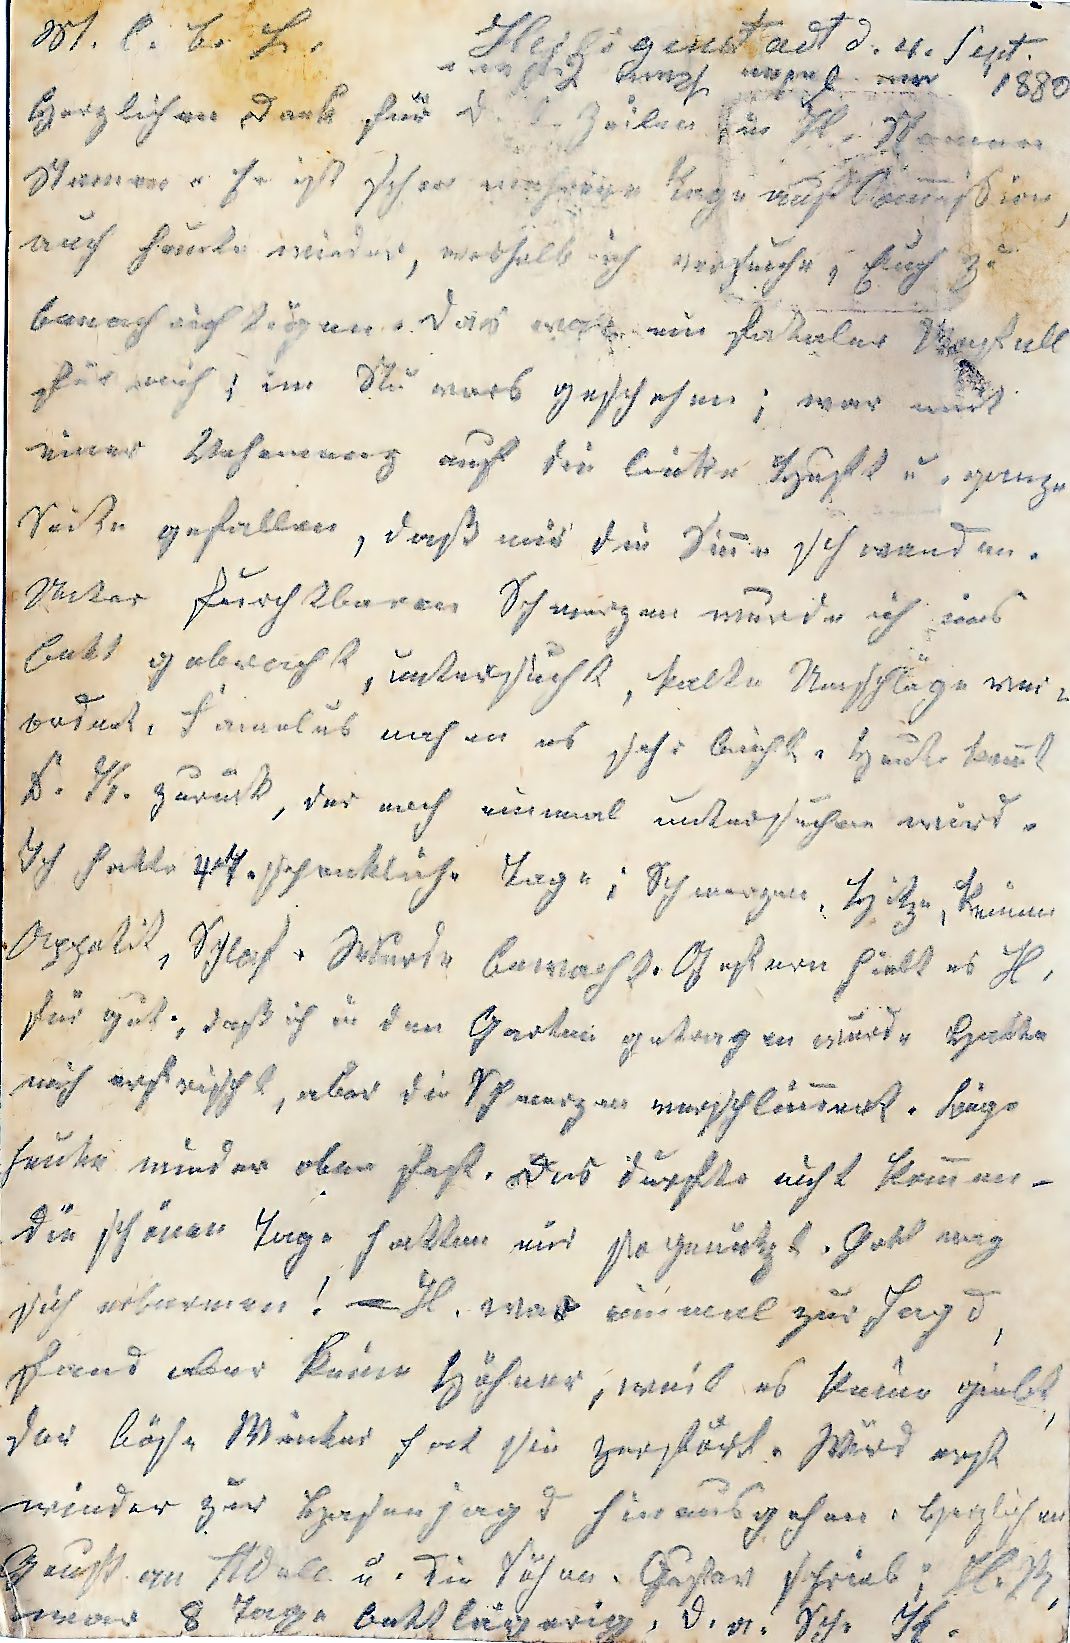 M. l. b. L. Heiligenstadt d. 4. Sept.
1880
Herzlichen Dank für D. l. Zeilen in H.
Namen. Er ist schon mehrere Tage auf Commission,
auch heute wieder, weshalb ich versuche, Euch zu
benachrichtigen. Das war ein fataler Vorfall
für mich; im Nu wars geschehen; war mit
einer Vehemenz auf die linke Hüfte u. ganze
Seite gefallen, daß mir die Sinne schwanden.
Unter furchtbaren Schmerzen wurde ich ins
Bett gebracht, untersucht, kalte Umschläge ver-
ordnet. Famulus nahm es sehr leicht. Heute kommt
D. K. zurück, der noch einmal untersuchen wird.
Ich hatte 4 schreckliche Tage; Schmerzen, Hitze, keinen
Appetit, Schlaf. Wurde bewacht. Gestern hielt es H.
für gut, daß ich in den Garten getragen wurde. Hatte
mich erfrischt, aber die Schmerzen verschlimmert. Liege
heute wieder oben fest. Das durfte nicht kommen –
die schönen Tage hatten mir so genützt. Gott mag
sich erbarmen! – H. war einmal zur Jagd,
fand aber keine Hühner, weil es keine giebt,
der böse Winter hat sie zerstört. Wird erst
wieder zur Hasenjagd hinausgehen. Herzlichen
Gruß an Adele u. die Söhne. Gustav schrieb; H. P.
war 8 Tage bettlägerig. D. a. Sch. H.